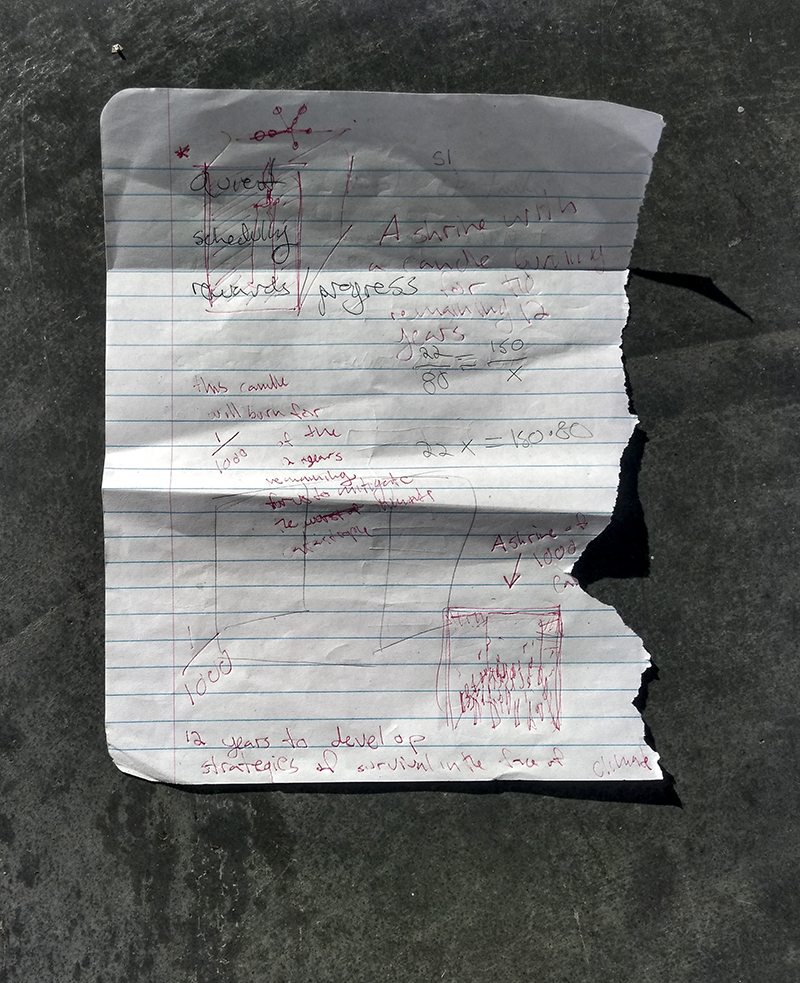 51
Quiet
scheduling
rewards / progress
A shrine with
a candle burning
for the
remaining 12
years
22/80 = 150/x
22x = 150·80
this candle
will burn for
1/1000 of the
12 years
remaining
for us to mitigate
the worst of
catastrophe
A shrine of
1000
1/1000
12 years to develop
strategies of survival in the face of climate